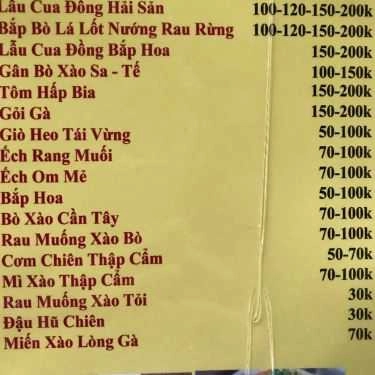 Lẩu Cua Đồng Hải Sản 100-120-150-200k
Bắp Bò Lá Lốt Nướng Rau Rừng 100-120-150-200k
Lẩu Cua Đồng Bắp Hoa 150-200k
Gân Bò Xào Sa - Tế 100-150k
Tôm Hấp Bia 150-200k
Gỏi Gà 150-200k
Giò Heo Tái Vừng 50-100k
Ếch Rang Muối 70-100k
Ếch Om Mẻ 70-100k
Bắp Hoa 50-100k
Bò Xào Cần Tây 70-100k
Rau Muống Xào Bò 70-100k
Cơm Chiên Thập Cẩm 50-70k
Mì Xào Thập Cẩm 70-100k
Rau Muống Xào Tỏi 30k
Đậu Hũ Chiên 30k
Miến Xào Lòng Gà 70k